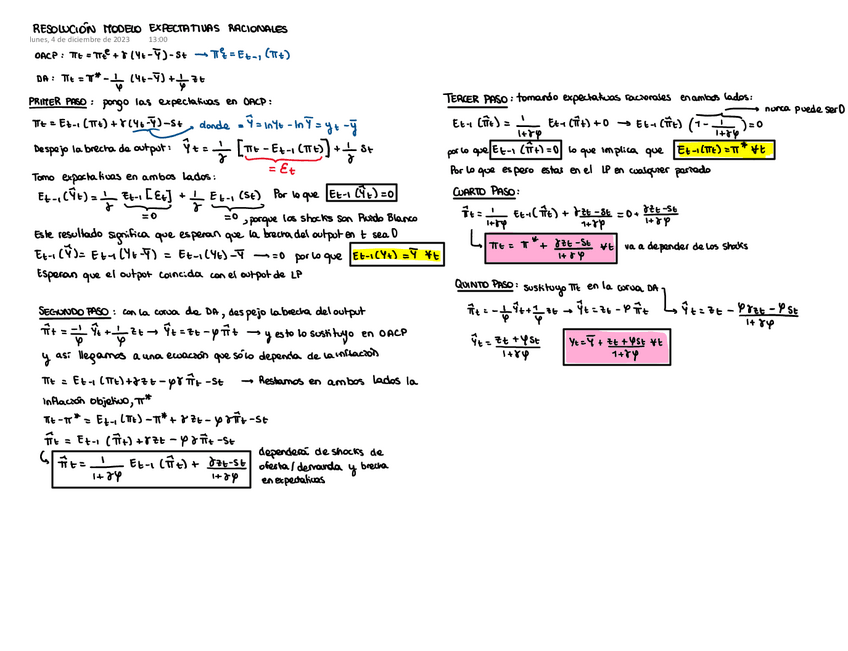 RESOLUCIÓN MODELO EXPECTATIVAS RACIONALES
lunes, 4 de diciembre de 2023 13:00
OACP: πt = πtᵉ + γ(Yt-Ȳ) - st → πtᵉ = Et-1(πt)
DA: πt = π* - 1/φ (Yt-Ȳ) + 1/φ zt
PRIMER PASO: pongo las expectativas en OACP:
πt = Et-1(πt) + γ(Yt-Ȳ) - st donde = Ŷ = lnYt - lnȲ = yt - ȳ
Despejo la brecha de output: Ŷt = 1/γ [πt - Et-1(πt)] + 1/γ st
= εt
Tomo expectativas en ambos lados:
Et-1(Ŷt) = 1/γ Et-1[εt] + 1/γ Et-1(st) Por lo que Et-1(Ŷt)=0
=0 =0, porque los shocks son Ruido Blanco
Este resultado significa que esperan que la brecha del output en t sea 0
Et-1(Ŷ) = Et-1(Yt-Ȳ) = Et-1(Yt)-Ȳ → =0 por lo que Et-1(Yt) = Ȳ ∀t
Esperan que el output coincida con el output de LP
SEGUNDO PASO: con la curva de DA, despejo la brecha del output
π̂t = -1/φ Ŷt + 1/φ zt → Ŷt = zt - φ π̂t → y esto lo sustituyo en OACP
y así llegamos a una ecuación que sólo dependa de la inflación
πt = Et-1(πt) + γzt - φγ π̂t - st → Restamos en ambos lados la
inflación objetivo, π*
πt - π* = Et-1(πt) - π* + γzt - φγπ̂t - st
π̂t = Et-1(π̂t) + γzt - φγπ̂t - st
π̂t = 1/1+γφ Et-1(π̂t) + γzt-st/1+γφ
dependerá de shocks de
oferta/demanda y brecha
en expectativas
TERCER PASO: tomando expectativas racionales en ambos lados:
nunca puede ser 0
Et-1(π̂t) = 1/1+γφ Et-1(π̂t) + 0 → Et-1(π̂t) (1 - 1/1+γφ) = 0
por lo que Et-1(π̂t)=0 lo que implica que Et-1(πt) = π* ∀t
Por lo que espero estar en el LP en cualquier periodo
CUARTO PASO:
π̂t = 1/1+γφ Et-1(π̂t) + γzt-st/1+γφ = 0 + γzt-st/1+γφ
πt = π* + γzt-st/1+γφ ∀t va a depender de los shocks
QUINTO PASO: sustituyo πt en la curva DA
π̂t = -1/φ Ŷt + 1/φ zt → Ŷt = zt - φ π̂t → Ŷt = zt - φγzt - φst/1+γφ
Ŷt = zt+φst/1+γφ Yt = Ȳ + zt+φst/1+γφ ∀t